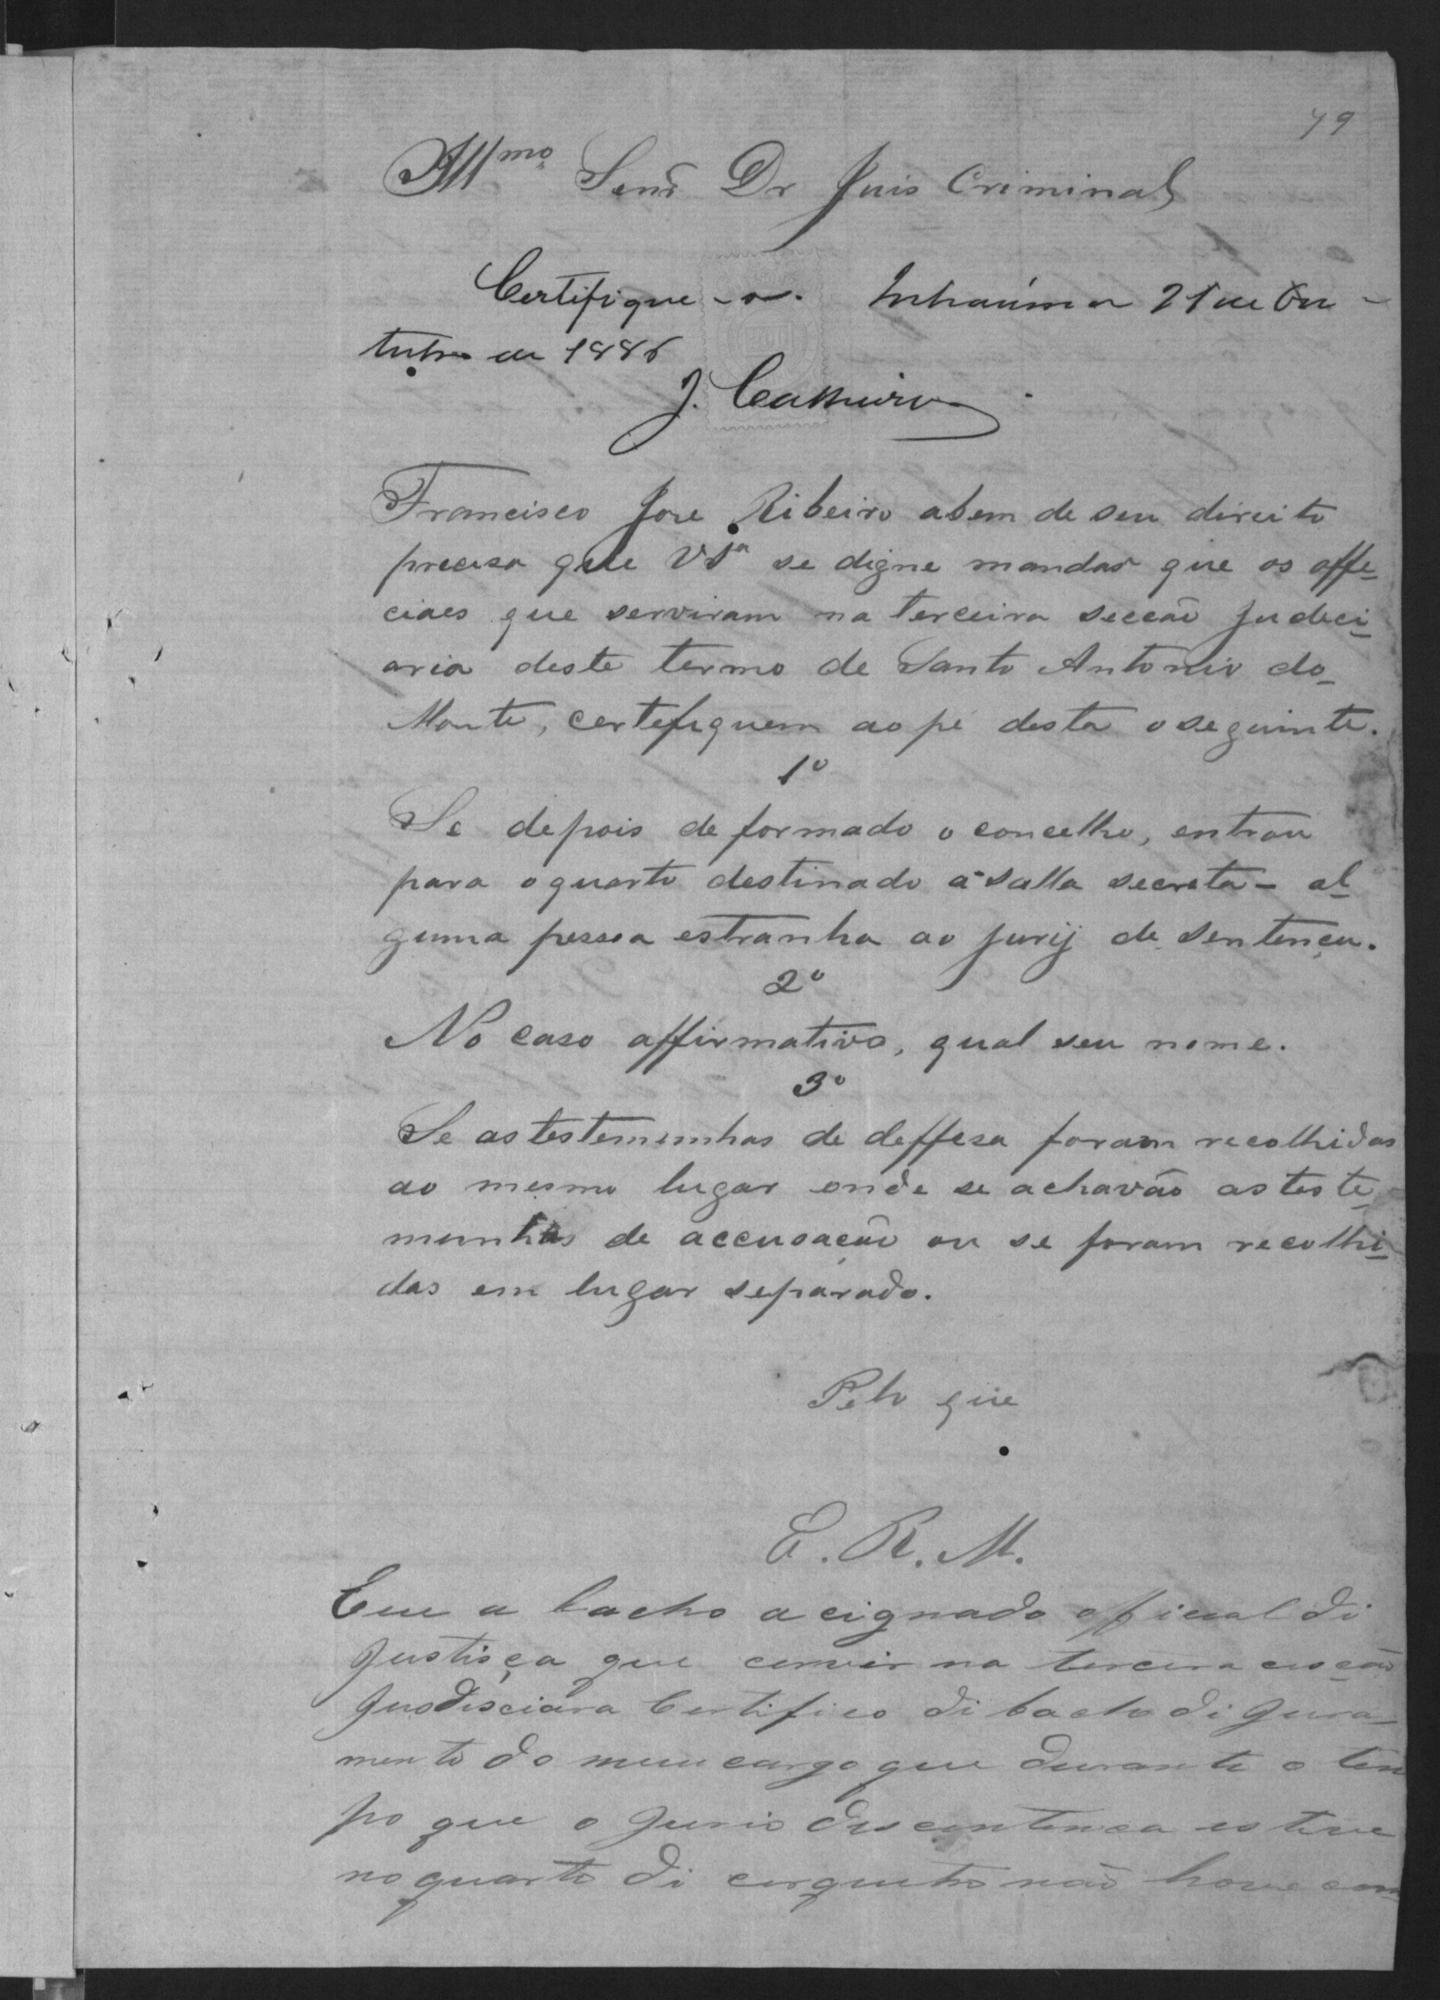 79
Illmo Senr Dr Juis Criminal
Certifique-se. Inhaúma 21 de Ou-
tubro de 1886
J. Cassimiro
Francisco Jose Ribeiro abem de seu direito
precisa que VSa se digne mandar que os offe-
ciaes que serviram na terceira secção Judeci-
aria deste termo de Santo Antonio do
Monte, certefiquem ao pé desta o seguinte.
1º
Se depois de formado o concelho, entrou
para o quarto destinado a salla secreta - al
guma pessoa estranha ao jury de sentença.
2º
No caso affirmativo, qual seu nome.
3º
Se as testemunhas de deffesa foram recolhidas
ao mesmo lugar onde se achavão as teste
munhas de accusação ou se foram recolhi-
das em lugar separado.
Pelo que
E. R. M.
Eu a bacho acignado official di
Justisça que cervir na tercera cesção
Jusdisciara Certifico di bacho di Jura-
mento do meu cargo que durante o tem
po que o Jurio descentenca esteve
no quarto di cequeto não houve com